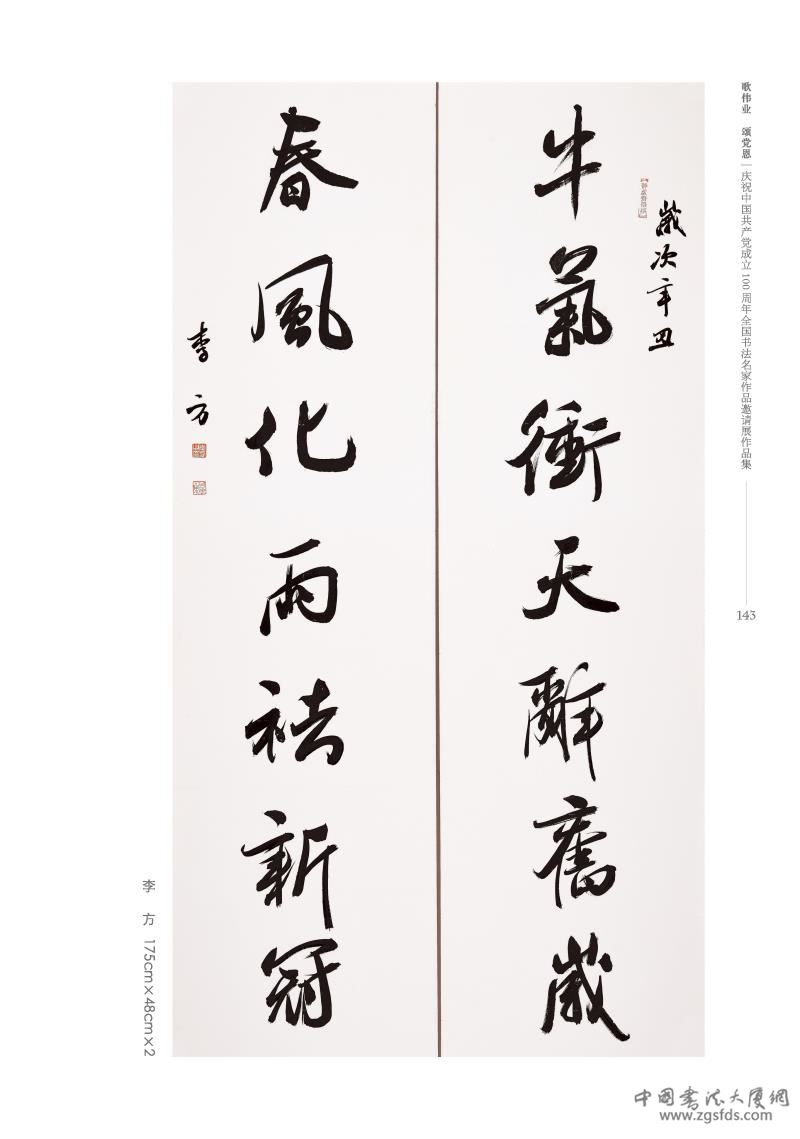 歌伟业 颂党恩 | 庆祝中国共产党成立100周年全国书法名家作品邀请展作品集
143
歲次辛丑
牛氣衝天辭舊歲
春風化雨祛新冠
李方
李 方 175cm×48cm×2
中国书法大厦網
www.zgsfds.com